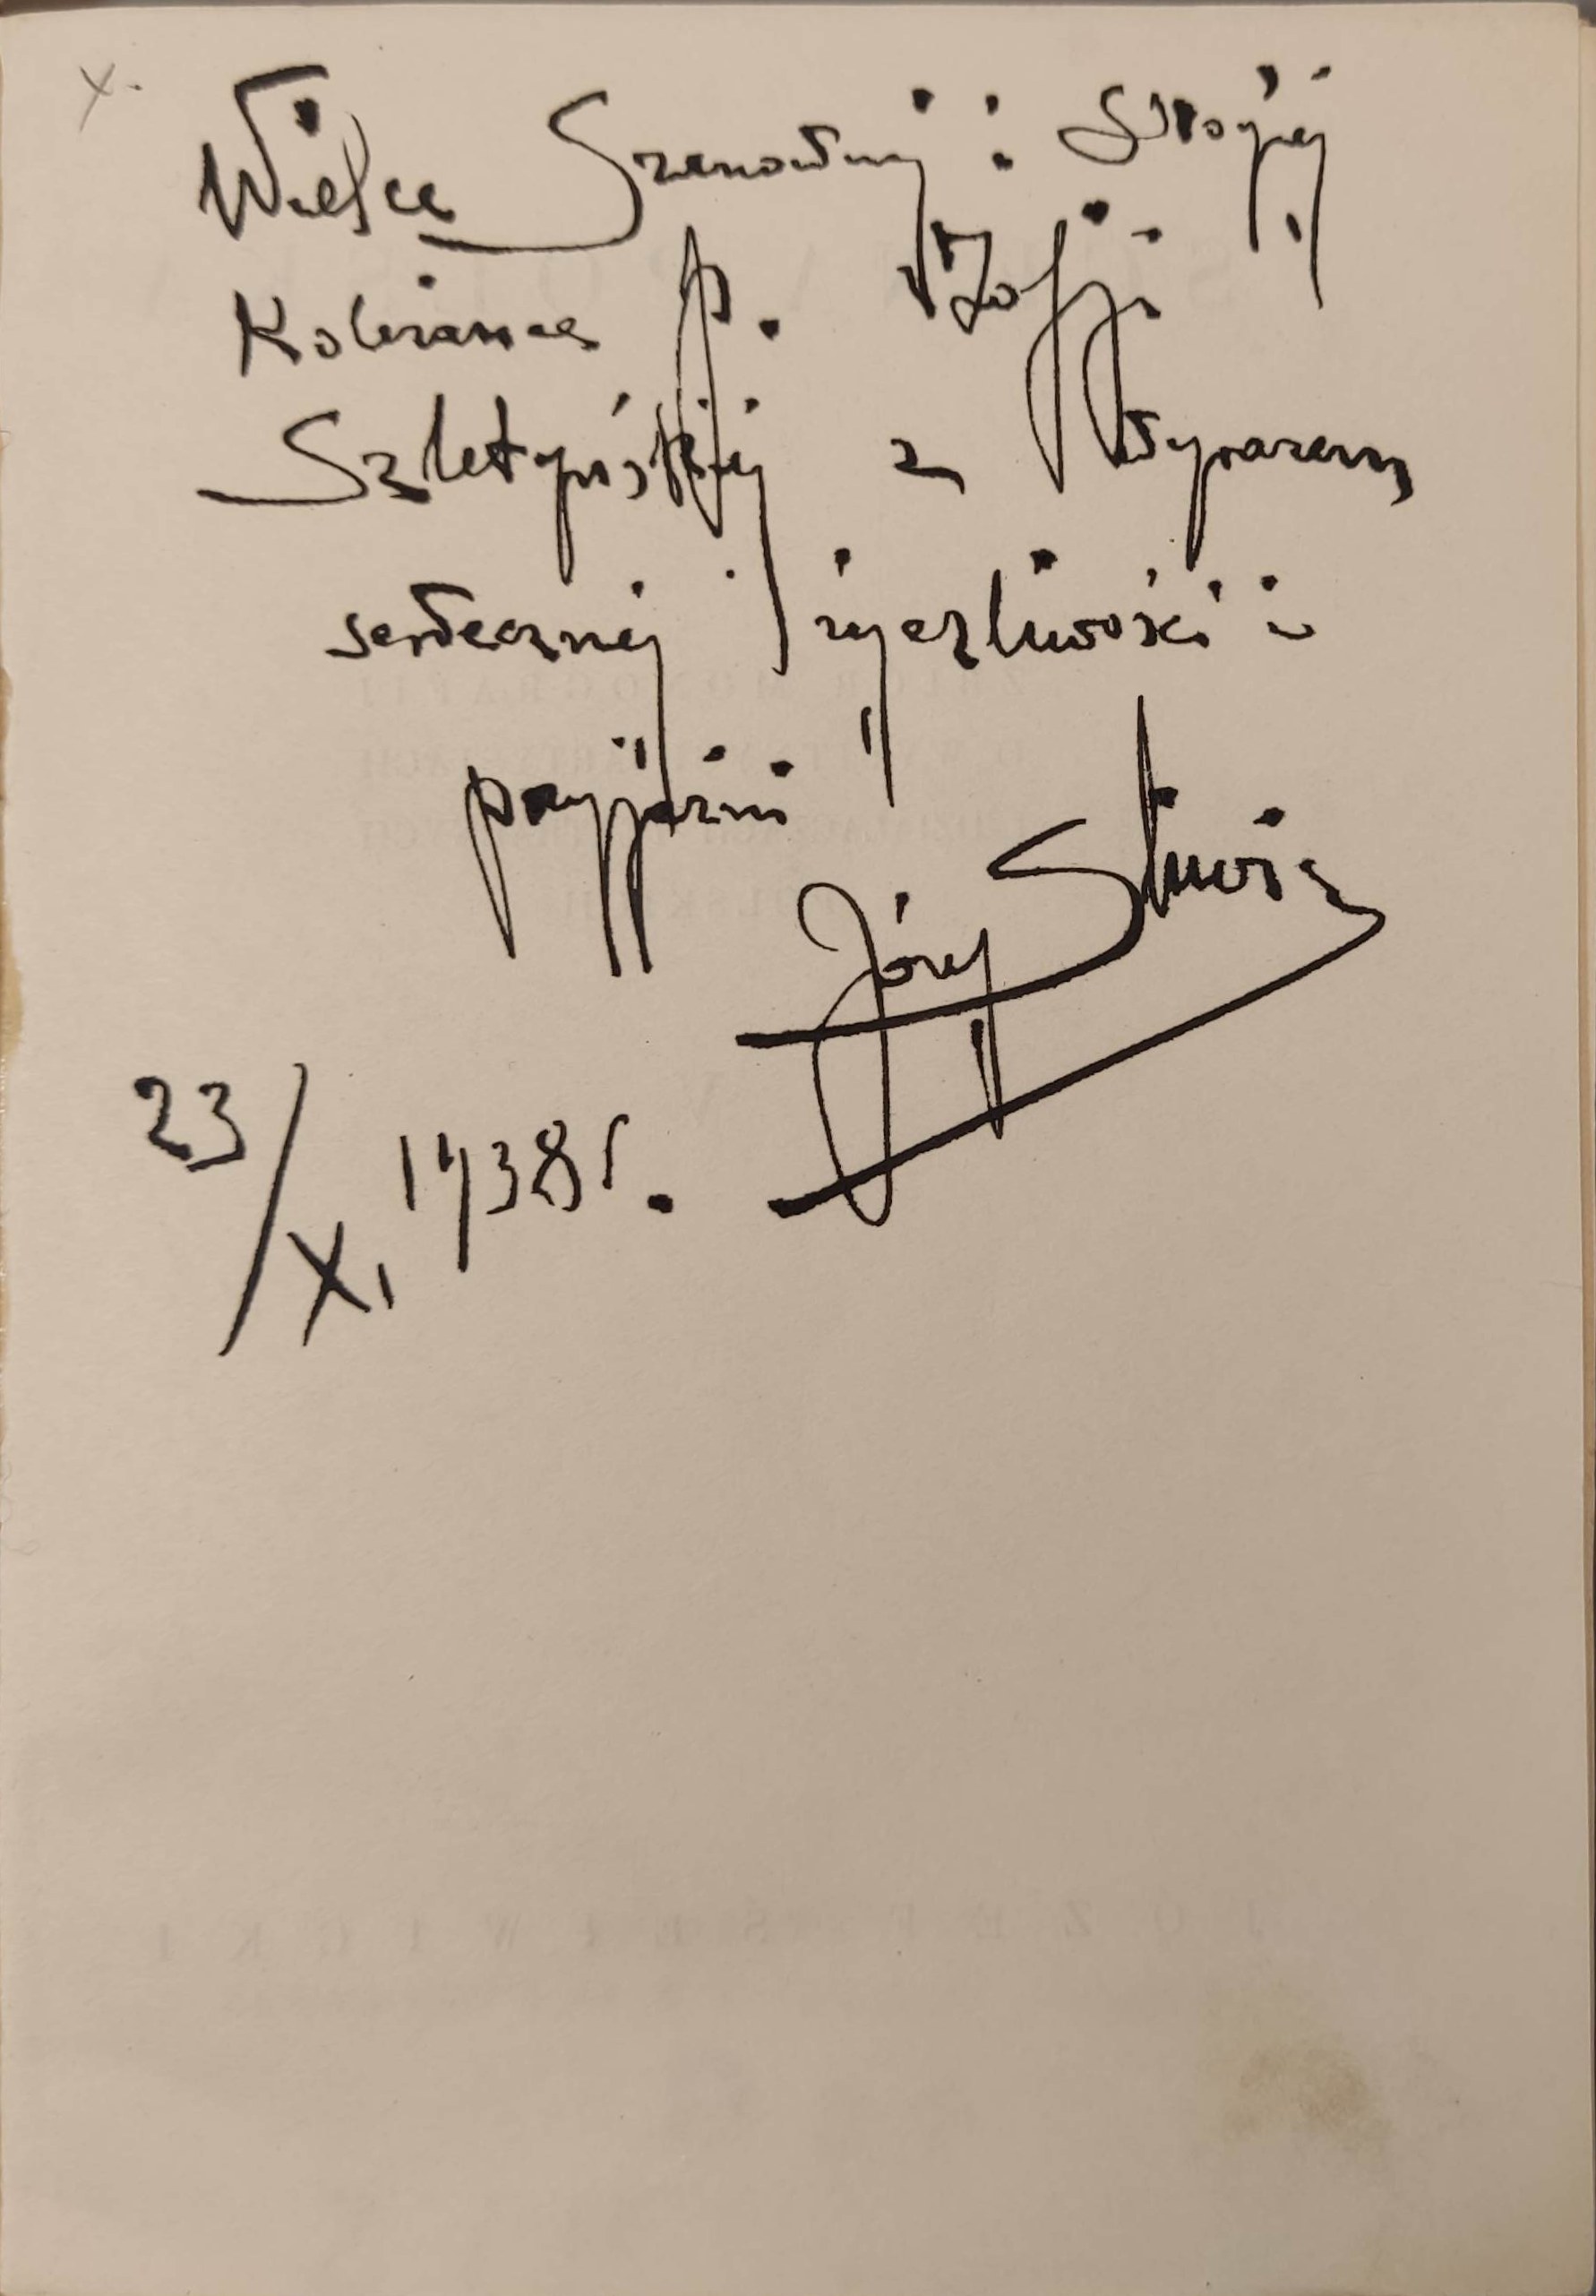 x.
Wielce Szanownej i Drogiej
Koleżance p. Zofji
Szletyńskiej z wyrazem
serdecznej życzliwości i
przyjaźni
Józef Śliwicki
23/XI 1938 r.